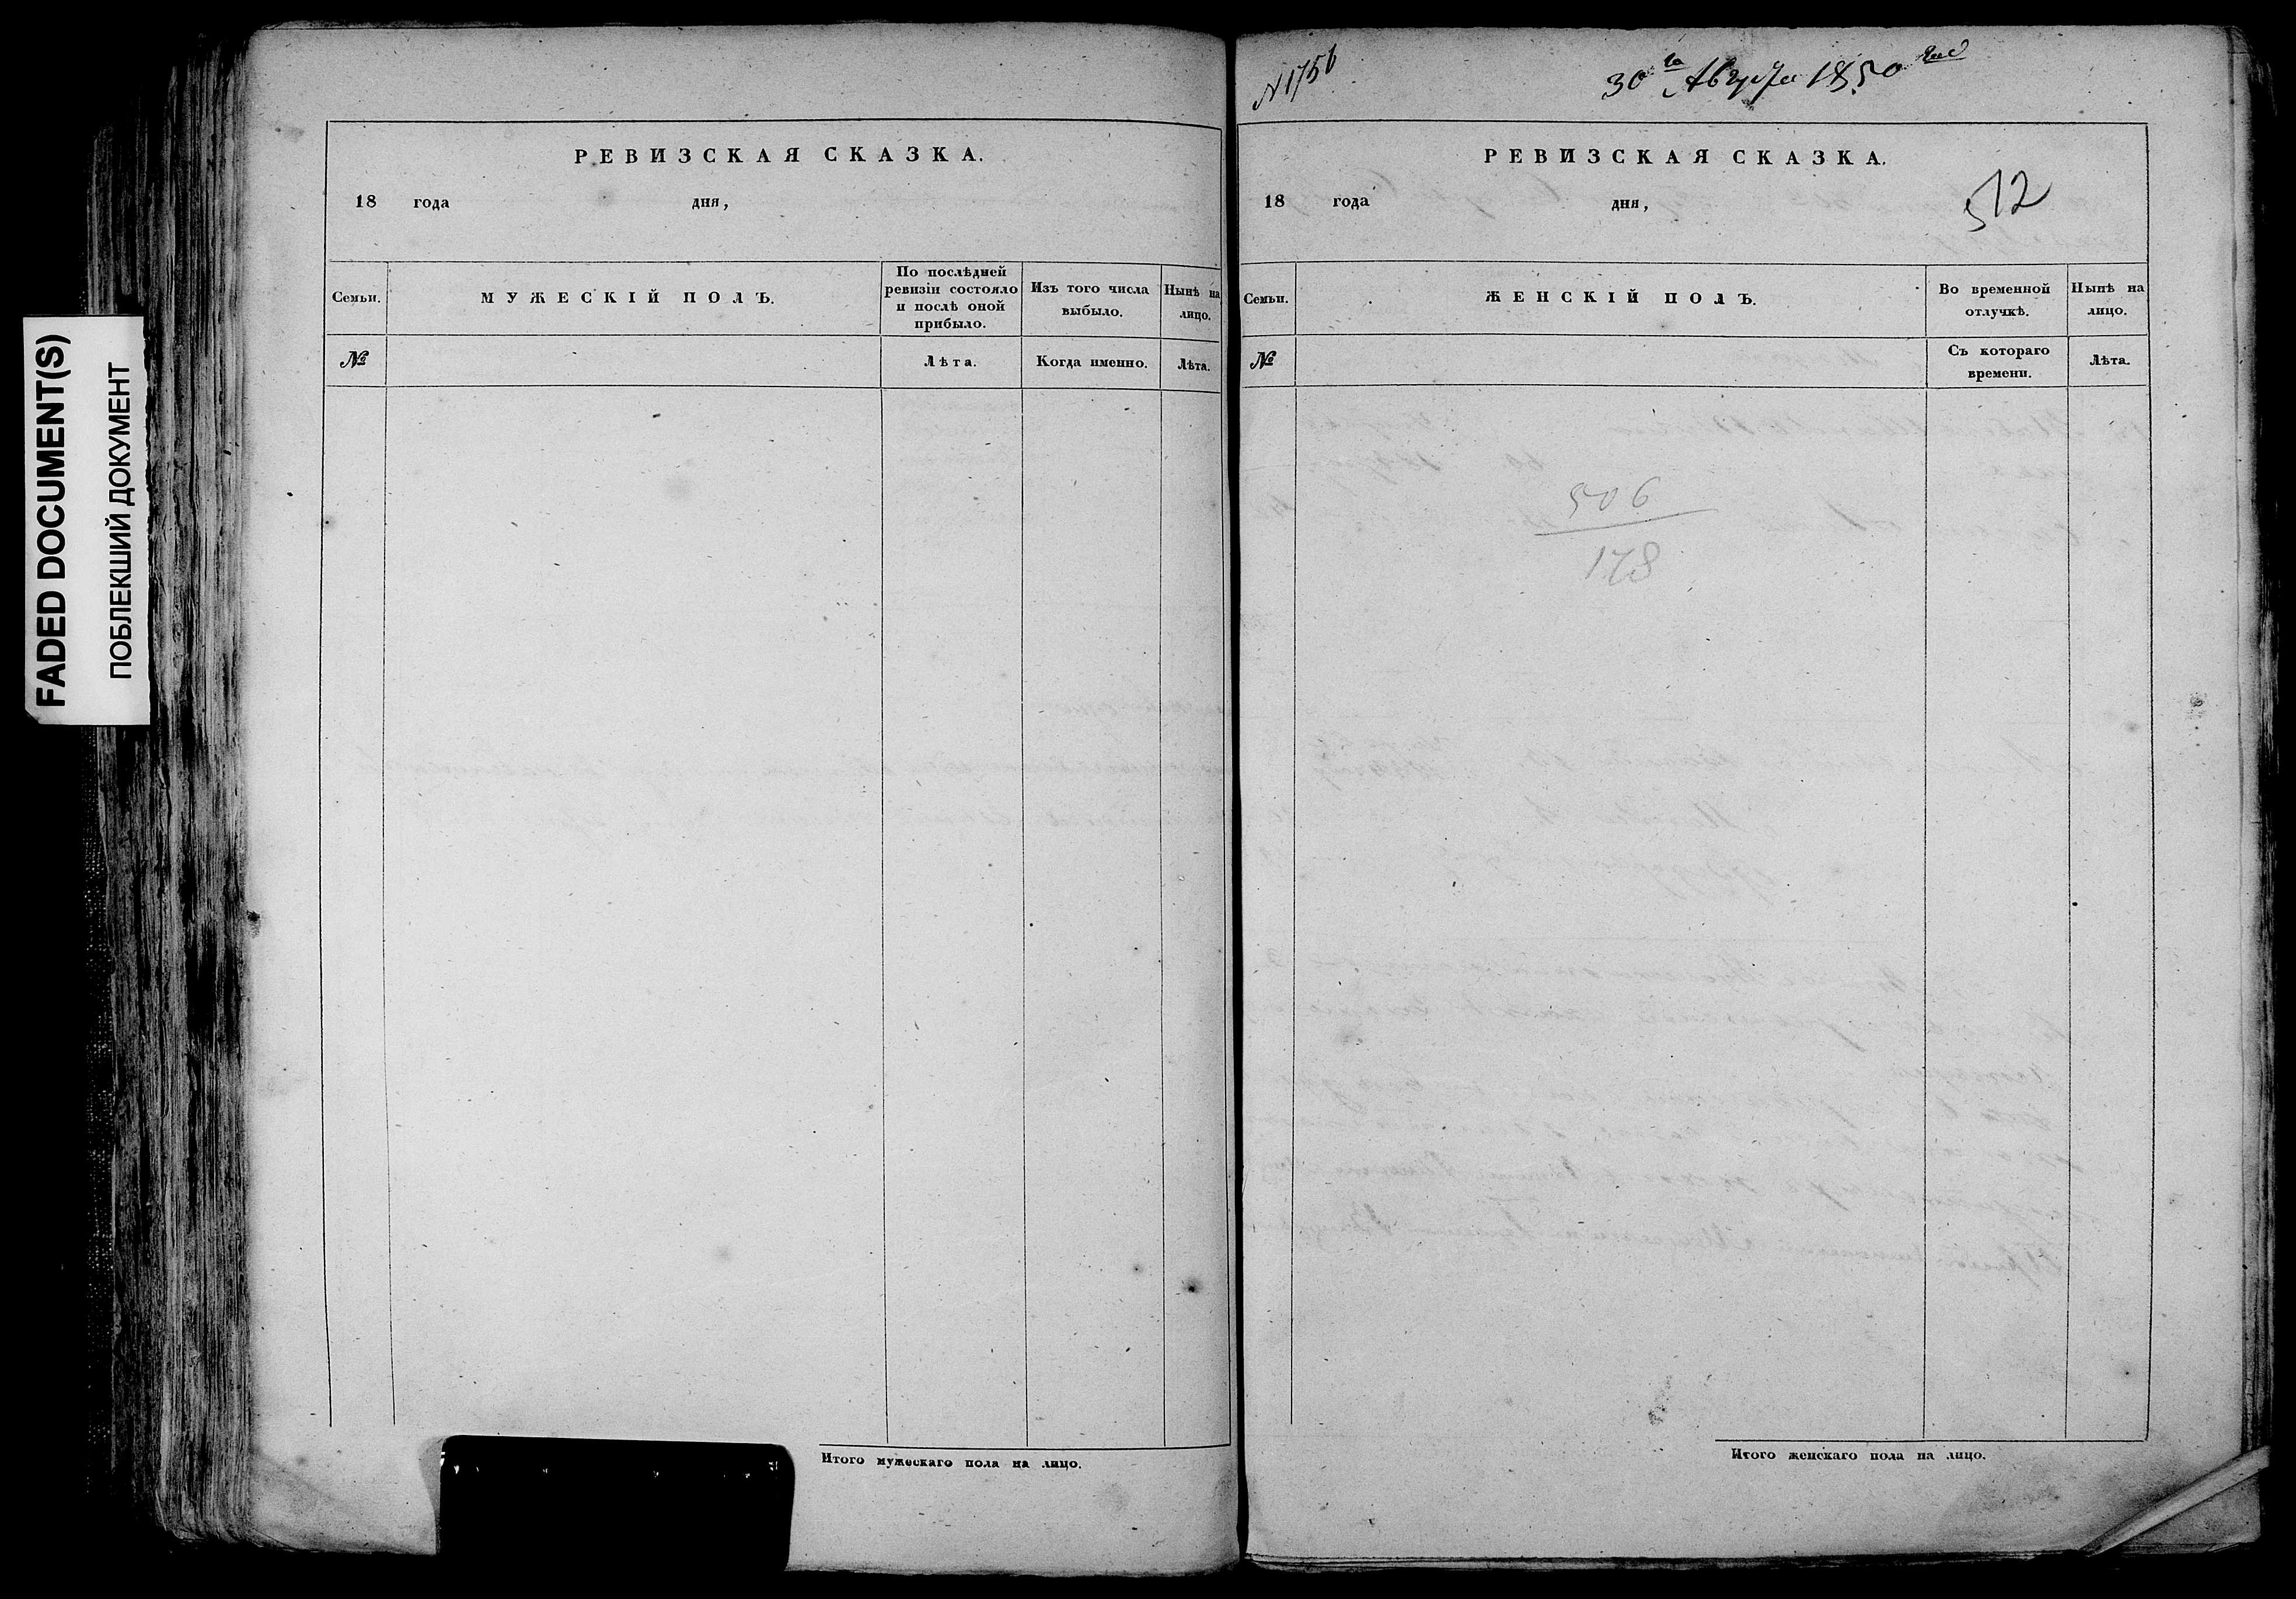 FADED DOCUMENT(S)
ПОБЛЕКШИЙ ДОКУМЕНТ
РЕВИЗСКАЯ СКАЗКА.
18 года дня,
Семьи.
МУЖЕСКІЙ ПОЛЪ.
По послѣдней
ревизіи состояло
и послѣ оной
прибыло.
Изъ того числа
выбыло.
Нынѣ на
лицо.
№
Лѣта.
Когда именно.
Лѣта.
Итого мужескаго пола на лицо.
N 1756
30го Августа 1850
РЕВИЗСКАЯ СКАЗКА.
18 года дня,
512
Семьи.
ЖЕНСКІЙ ПОЛЪ.
Во временной
отлучкѣ.
Нынѣ на
лицо.
№
Съ котораго
времени.
Лѣта.
506
178
Итого женскаго пола на лицо.